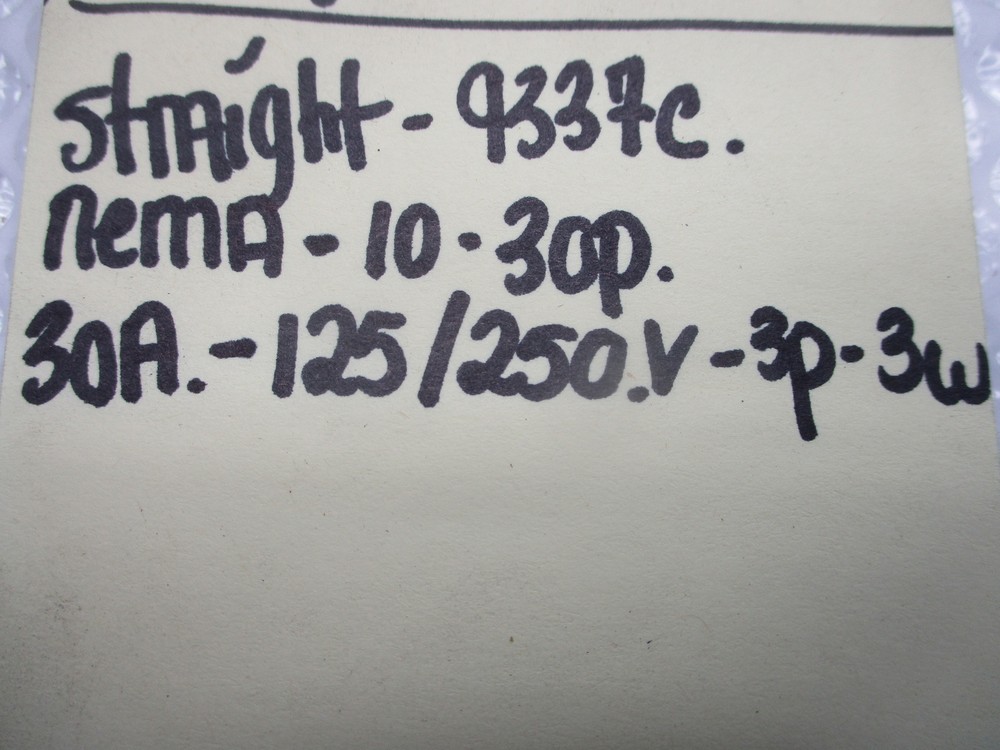 straight - 9337c.
nemA - 10 - 30p.
30A. - 125/250.V - 3p - 3w